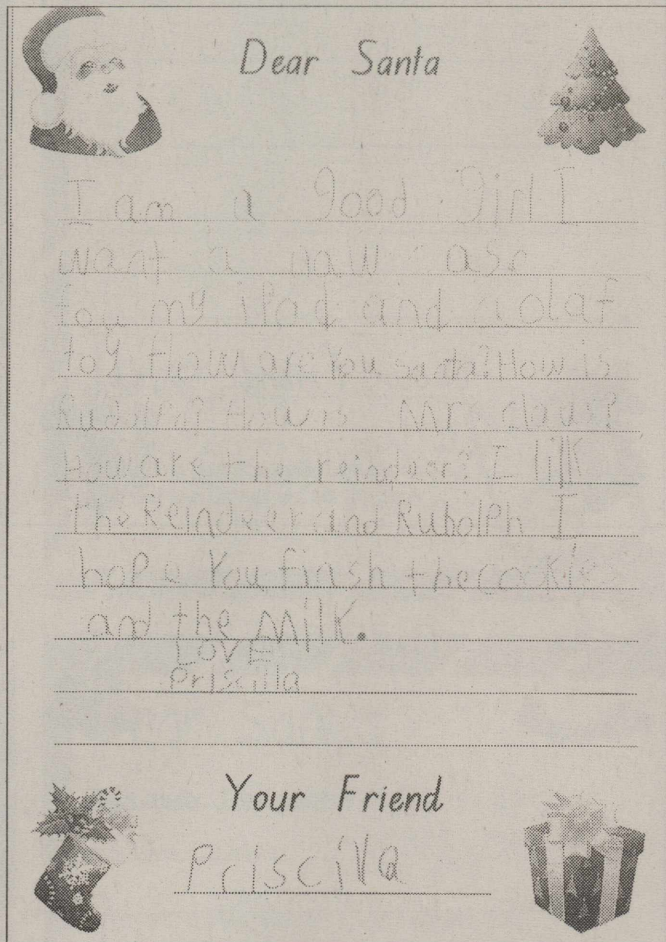 Dear Santa
I am a good girl I
want a naw case
foy my ipad and a olaf
toy How are You santa? How is
Rudolph? How is Mrs claus?
How are the reindeer? I lilk
the Reindeer and Rubolph I
hope You finsh the cookies
and the Milk.
LOVE
Priscilla
Your Friend
Priscilla